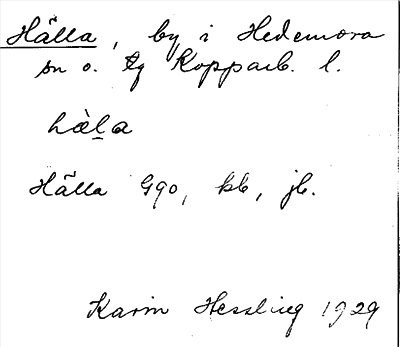 Hälla, by i Hedemora
sn o. tg Kopparb. l.
hàl̲a
Hälla Ggo, kb, jb.
Karin Hessling 1929